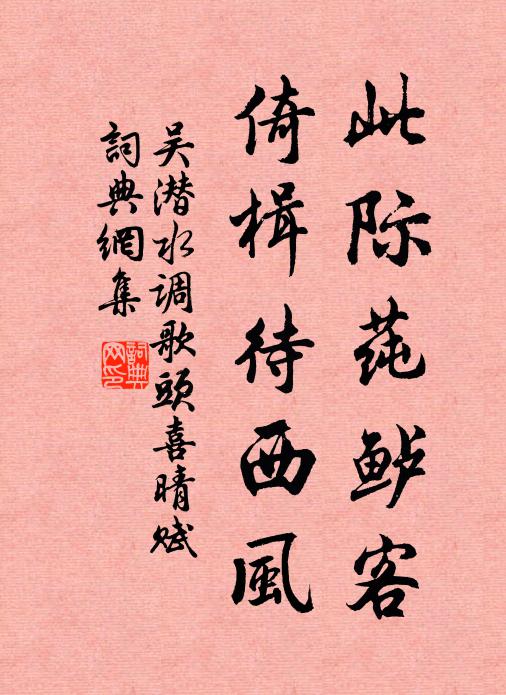 此际莼鲈客
倚楫待西風
吴潜水调歌頭喜晴赋
詞典網集
詞典網印